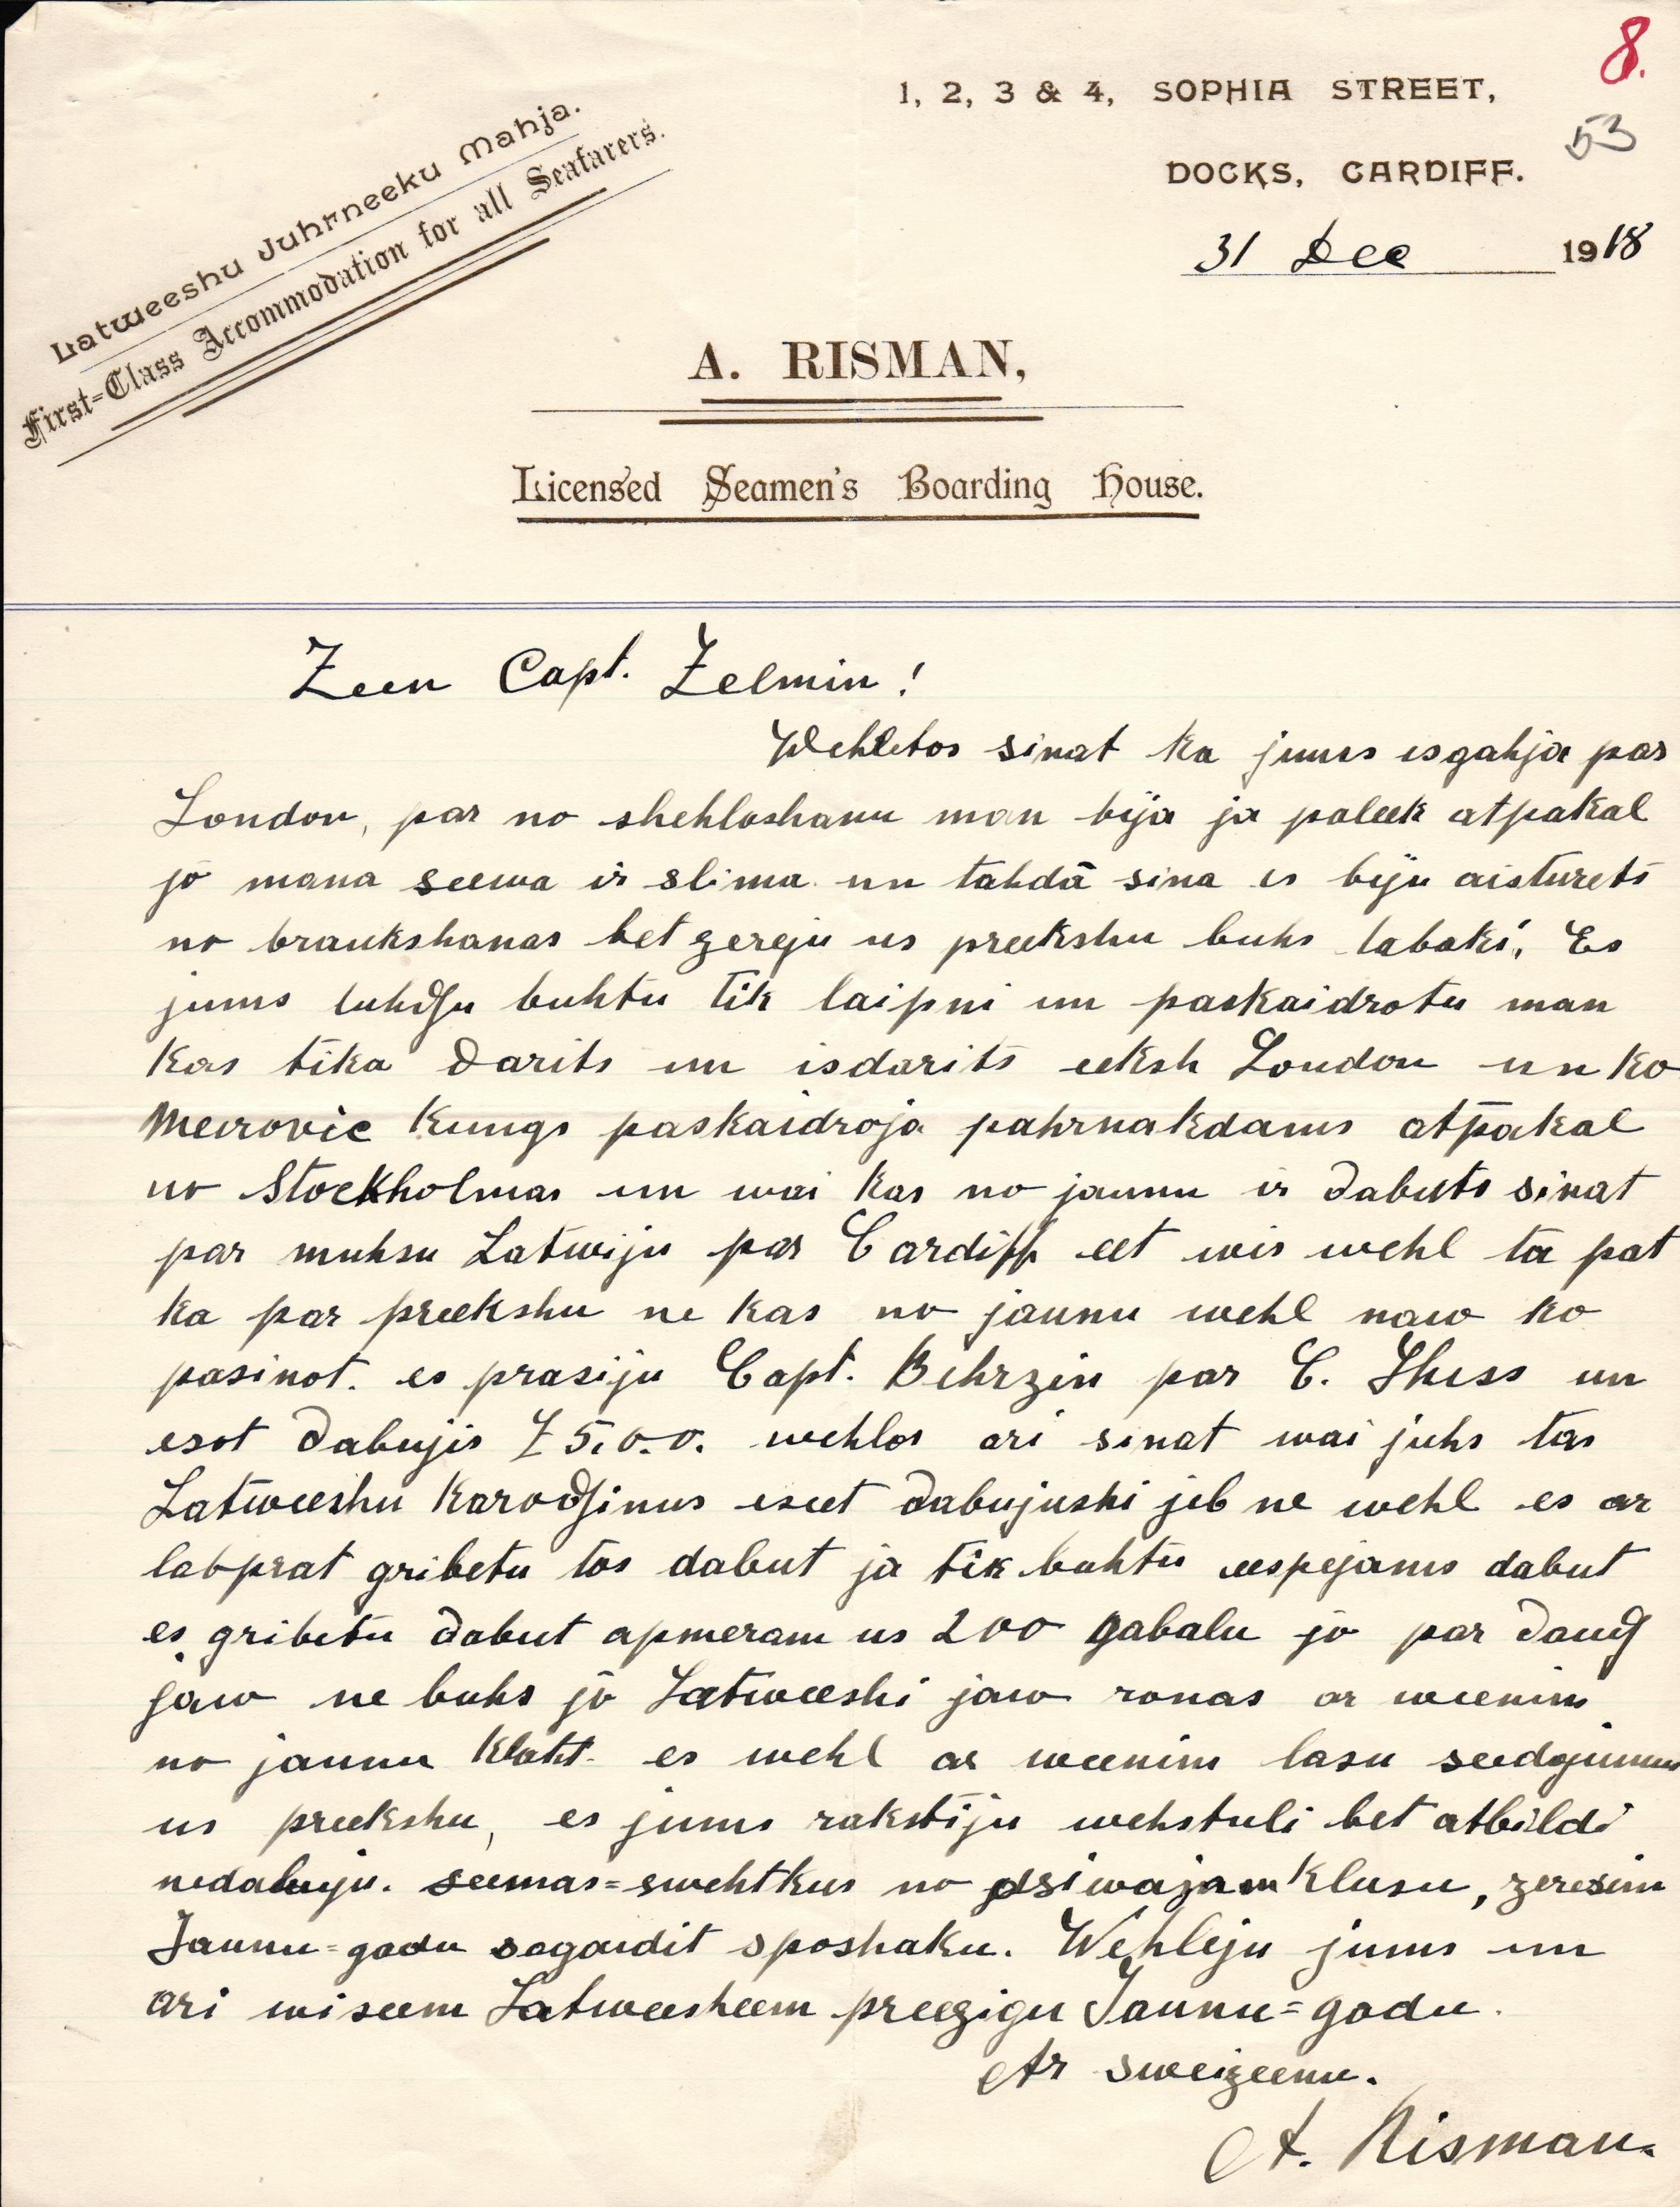 8.
1, 2, 3 & 4, SOPHIA STREET,
53
DOCKS, CARDIFF.
31 Dec 1918
Latweeshu Juhrneeku Mahja.
First-Class Accommodation for all Seafarers.
A. RISMAN,
Licensed Seamen's Boarding House.
Zeen Capt. Zelmin!
Wehletos sinat ka jums isgahja par
London, par no shehloshanu man bija ja paleek atpakal
jo mana seewa ir slima un tahdā sina es biju aisturets
no braukshanas bet zereju us preekshu buhs labaki. Es
jums luhdsu buhtu tik laipni un paskaidrotu man
kas tika darits un isdarits eeksh London un ko
Meirovic kungs paskaidroja pahrnahkdams atpakal
no Stockholmas un wai kas no jaunu ir dabuts sinat
par muhsu Latwiju par Cardiff eet wis wehl ta pat
ka par preekshu ne kas no jaunu wehl naw ko
pasinot. es prasiju Capt. Behrzin par C. un
esot dabujis £ 5.0.0. wehlos ari sinat wai juhs tas
Latweeshu karodsinus eseet dabujushi jeb ne wehl es ar
labprat gribetu tos dabut ja tik buhtu eespejams dabut
es gribetu dabut apmeram us 200 gabalu jo par daudz
jaw ne buhs jo Latweeshi jaw ronas ar weenim
no jaunu klaht. es wehl ar weenim lasu
us preekshu, es jums rakstiju wehstuli bet atbildi
nedabuju. seemas=swehtkus no dsiwajam klusu, zeresim
Jaunu=gadu sagaidit sposhaku. Wehleju jums un
ari wiseem Latweesheem preezigu Jaunu=gadu.
Ar sweizeenu.
A. Risman.